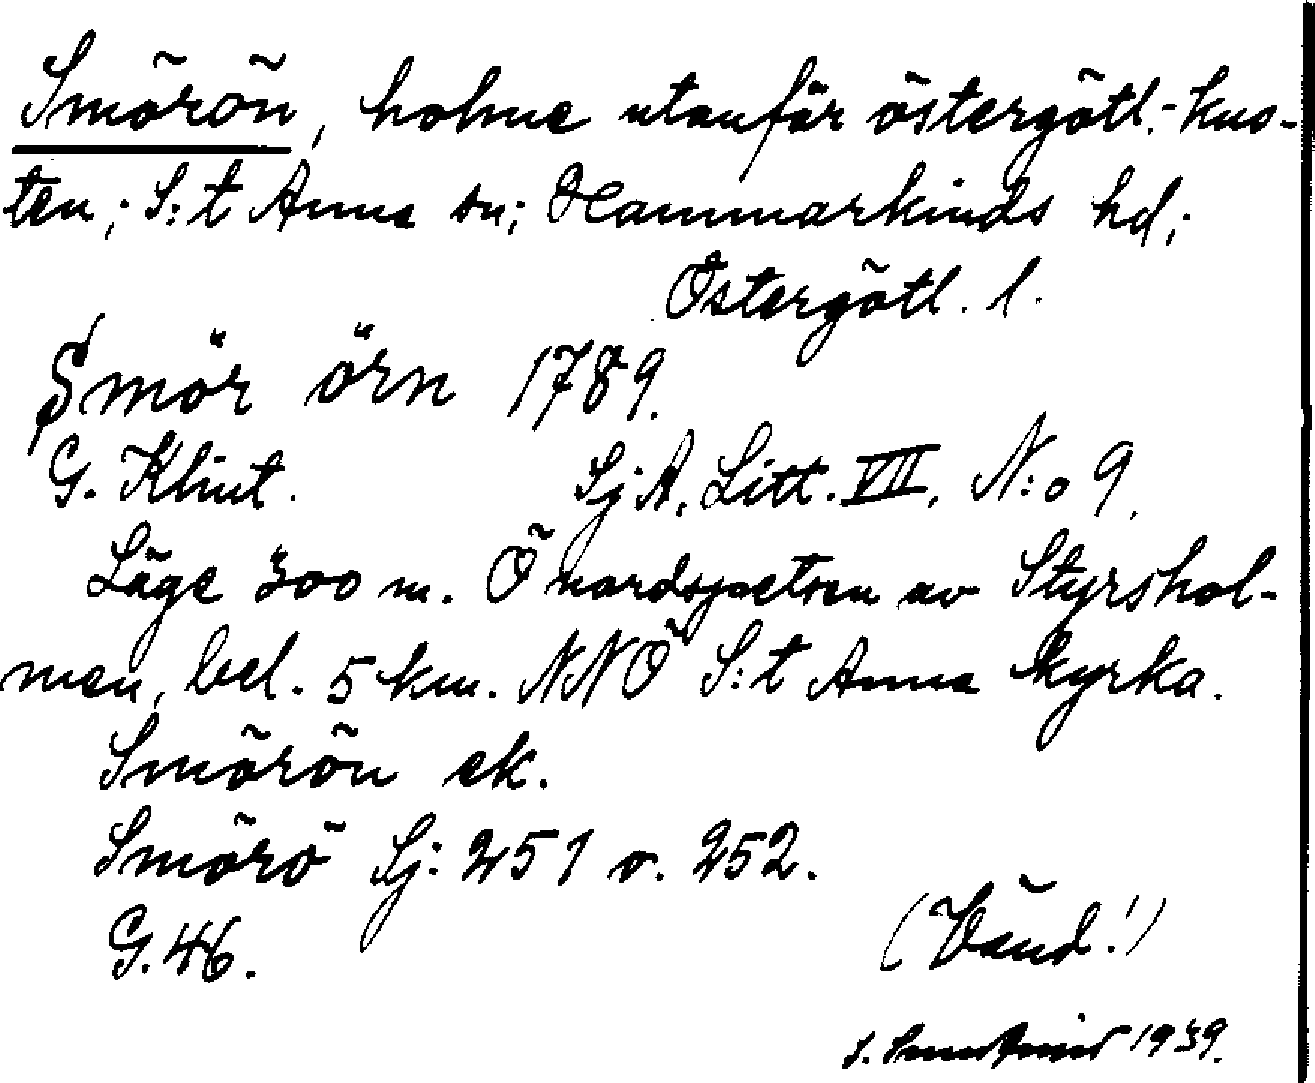 Smörön, holme utanför östergötl.-kus-
ten; S:t Anna sn; Hammarkinds hd;
Östergötl. l.
Smör örn 1789.
G. Klint. SjA, Litt. VII, N:o 9.
Läge 300 m. Ö nordspetsen av Styrshol-
men, bel. 5 km. NNÖ S:t Anna kyrka.
Smörön ek.
Smörö Sj: 251 o. 252.
G. 46.
(Vänd!)
1939.